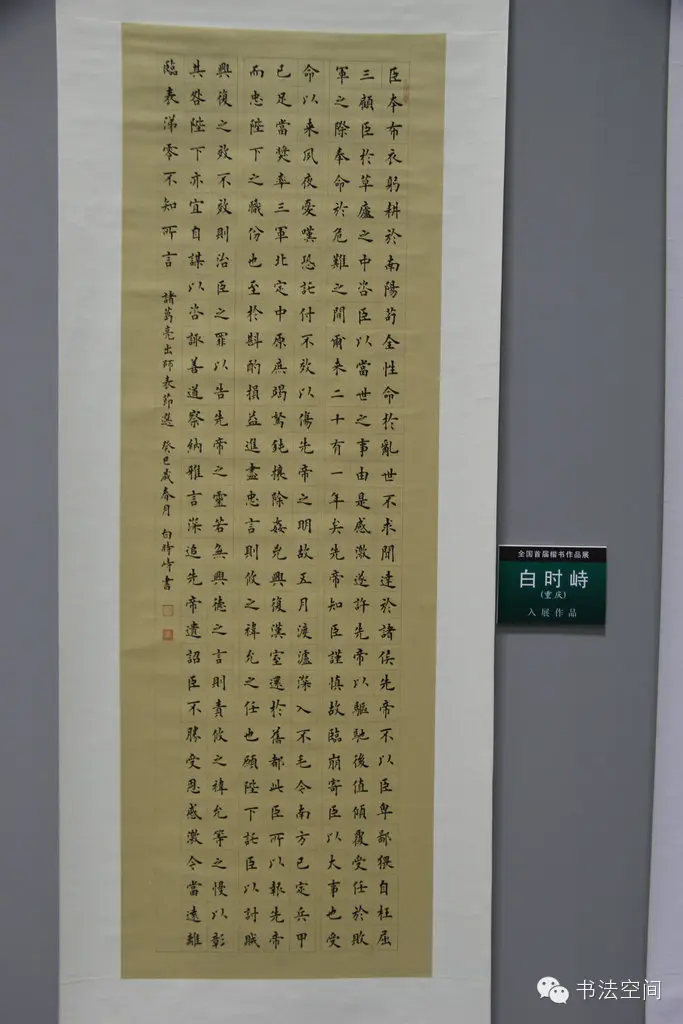 臣本布衣躬耕於南陽苟全性命於亂世不求聞達於諸侯先帝不以臣卑鄙猥自枉屈
三顧臣於草廬之中咨臣以當世之事由是感激遂許先帝以驅馳後值傾覆受任於敗
軍之際奉命於危難之間爾來二十有一年矣先帝知臣謹慎故臨崩寄臣以大事也受
命以來夙夜憂嘆恐託付不效以傷先帝之明故五月渡瀘深入不毛今南方已定兵甲
已足當獎率三軍北定中原庶竭駑鈍攘除姦兇興復漢室還於舊都此臣所以報先帝
而忠陛下之職份也至於斟酌損益進盡忠言則攸之禕允之任也願陛下託臣以討賊
興復之效不效則治臣之罪以告先帝之靈若無興德之言則責攸之禕允等之慢以彰
其咎陛下亦宜自謀以咨諏善道察納雅言深追先帝遺詔臣不勝受恩感激今當遠離
臨表涕零不知所言 諸葛亮出師表節選 癸巳歲春月 白時峙書
全国首届楷书作品展
白时峙
(重庆)
入展作品
书法空间